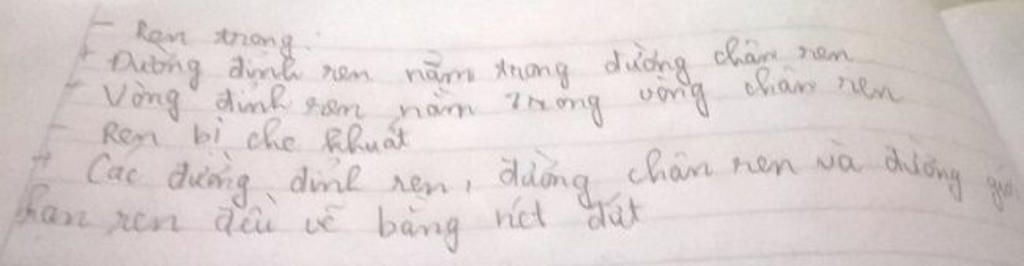 - Ren trong.
+ Đường đỉnh ren nằm trong đường chân ren
- Vòng đỉnh ren nằm trong vòng chân ren
- Ren bị che khuất
+ Các đường đỉnh ren, đường chân ren và đường giới
hạn ren đều vẽ bằng nét đứt